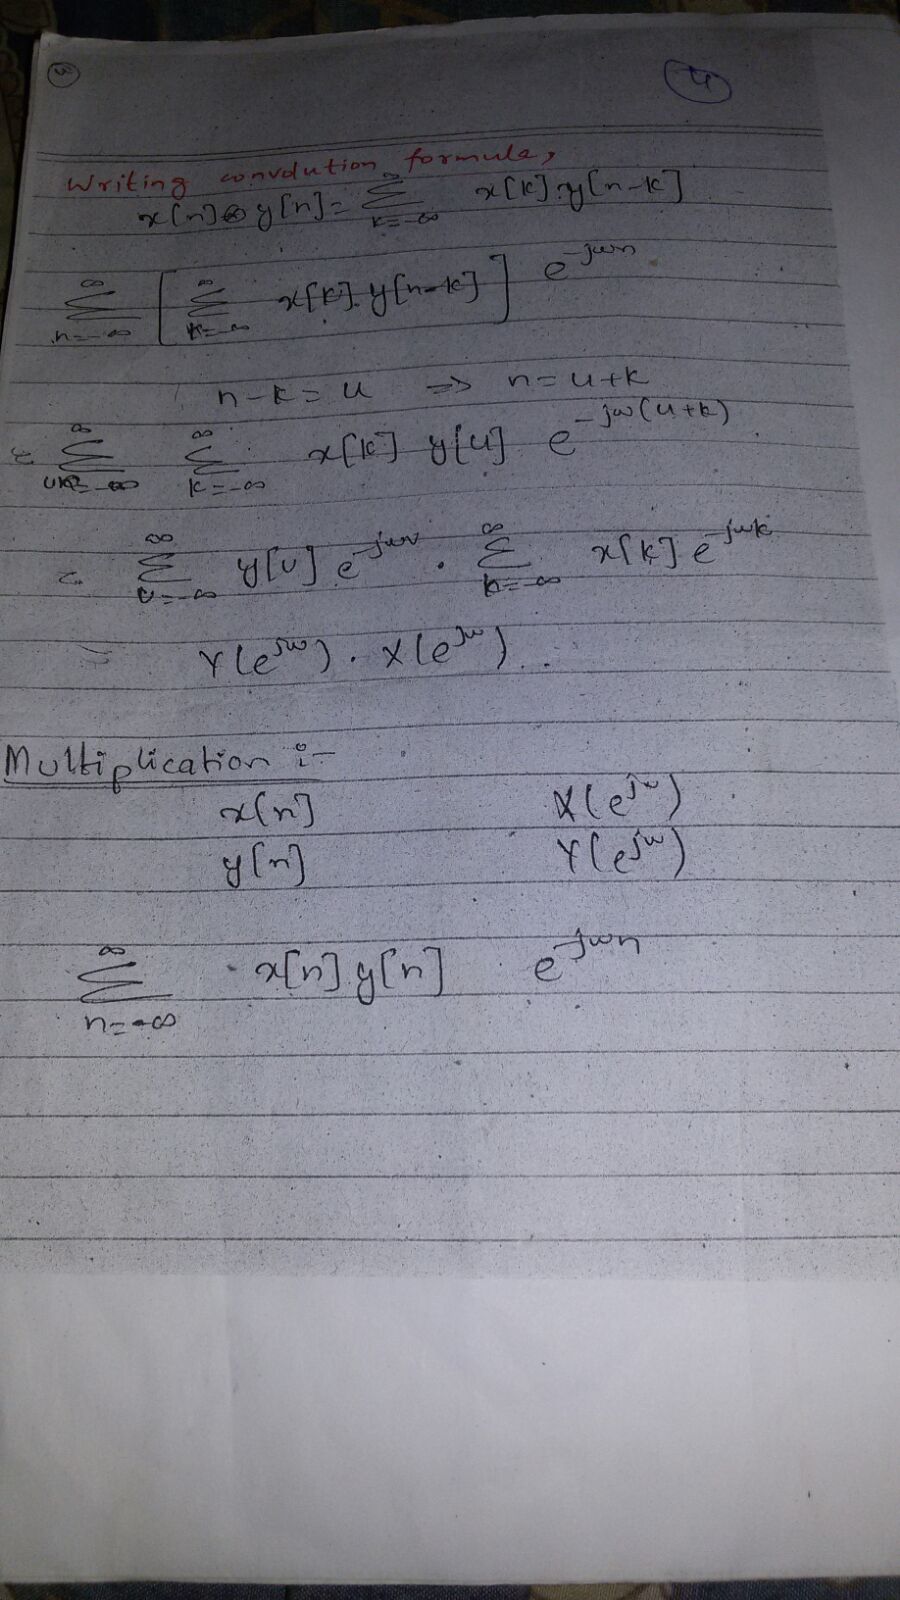 3
4
Writing convolution formula,
x[n]⊗y[n]= ∞ Σ k=-∞ x[k].y[n-k]
∞ Σ n=-∞ [ ∞ Σ k=-∞ x[k].y[n-k] ] e^-jωn
n-k=u => n=u+k
= ∞ Σ u=-∞ ∞ Σ k=-∞ x[k] y[u] e^-jω(u+k)
= ∞ Σ u=-∞ y[u] e^-jωu . ∞ Σ k=-∞ x[k] e^-jωk
= Y(e^jω) . X(e^jω)
Multiplication :-
x[n] X(e^jω)
y[n] Y(e^jω)
∞ Σ n=-∞ x[n] y[n] e^-jωn